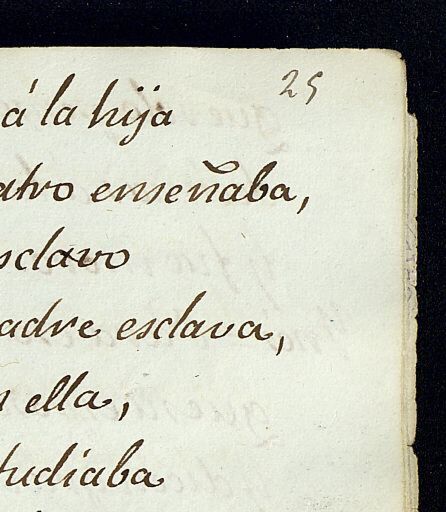 25
á la hija
atro enseñaba,
sclavo
adre esclava,
ella,
tudiaba